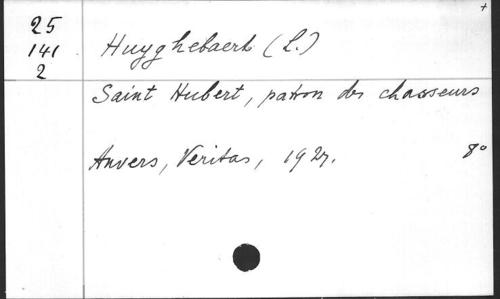 +
25
141
2
Huyghebaert (L.)
Saint Hubert, patron des chasseurs
Anvers, Veritas, 1927. 8°